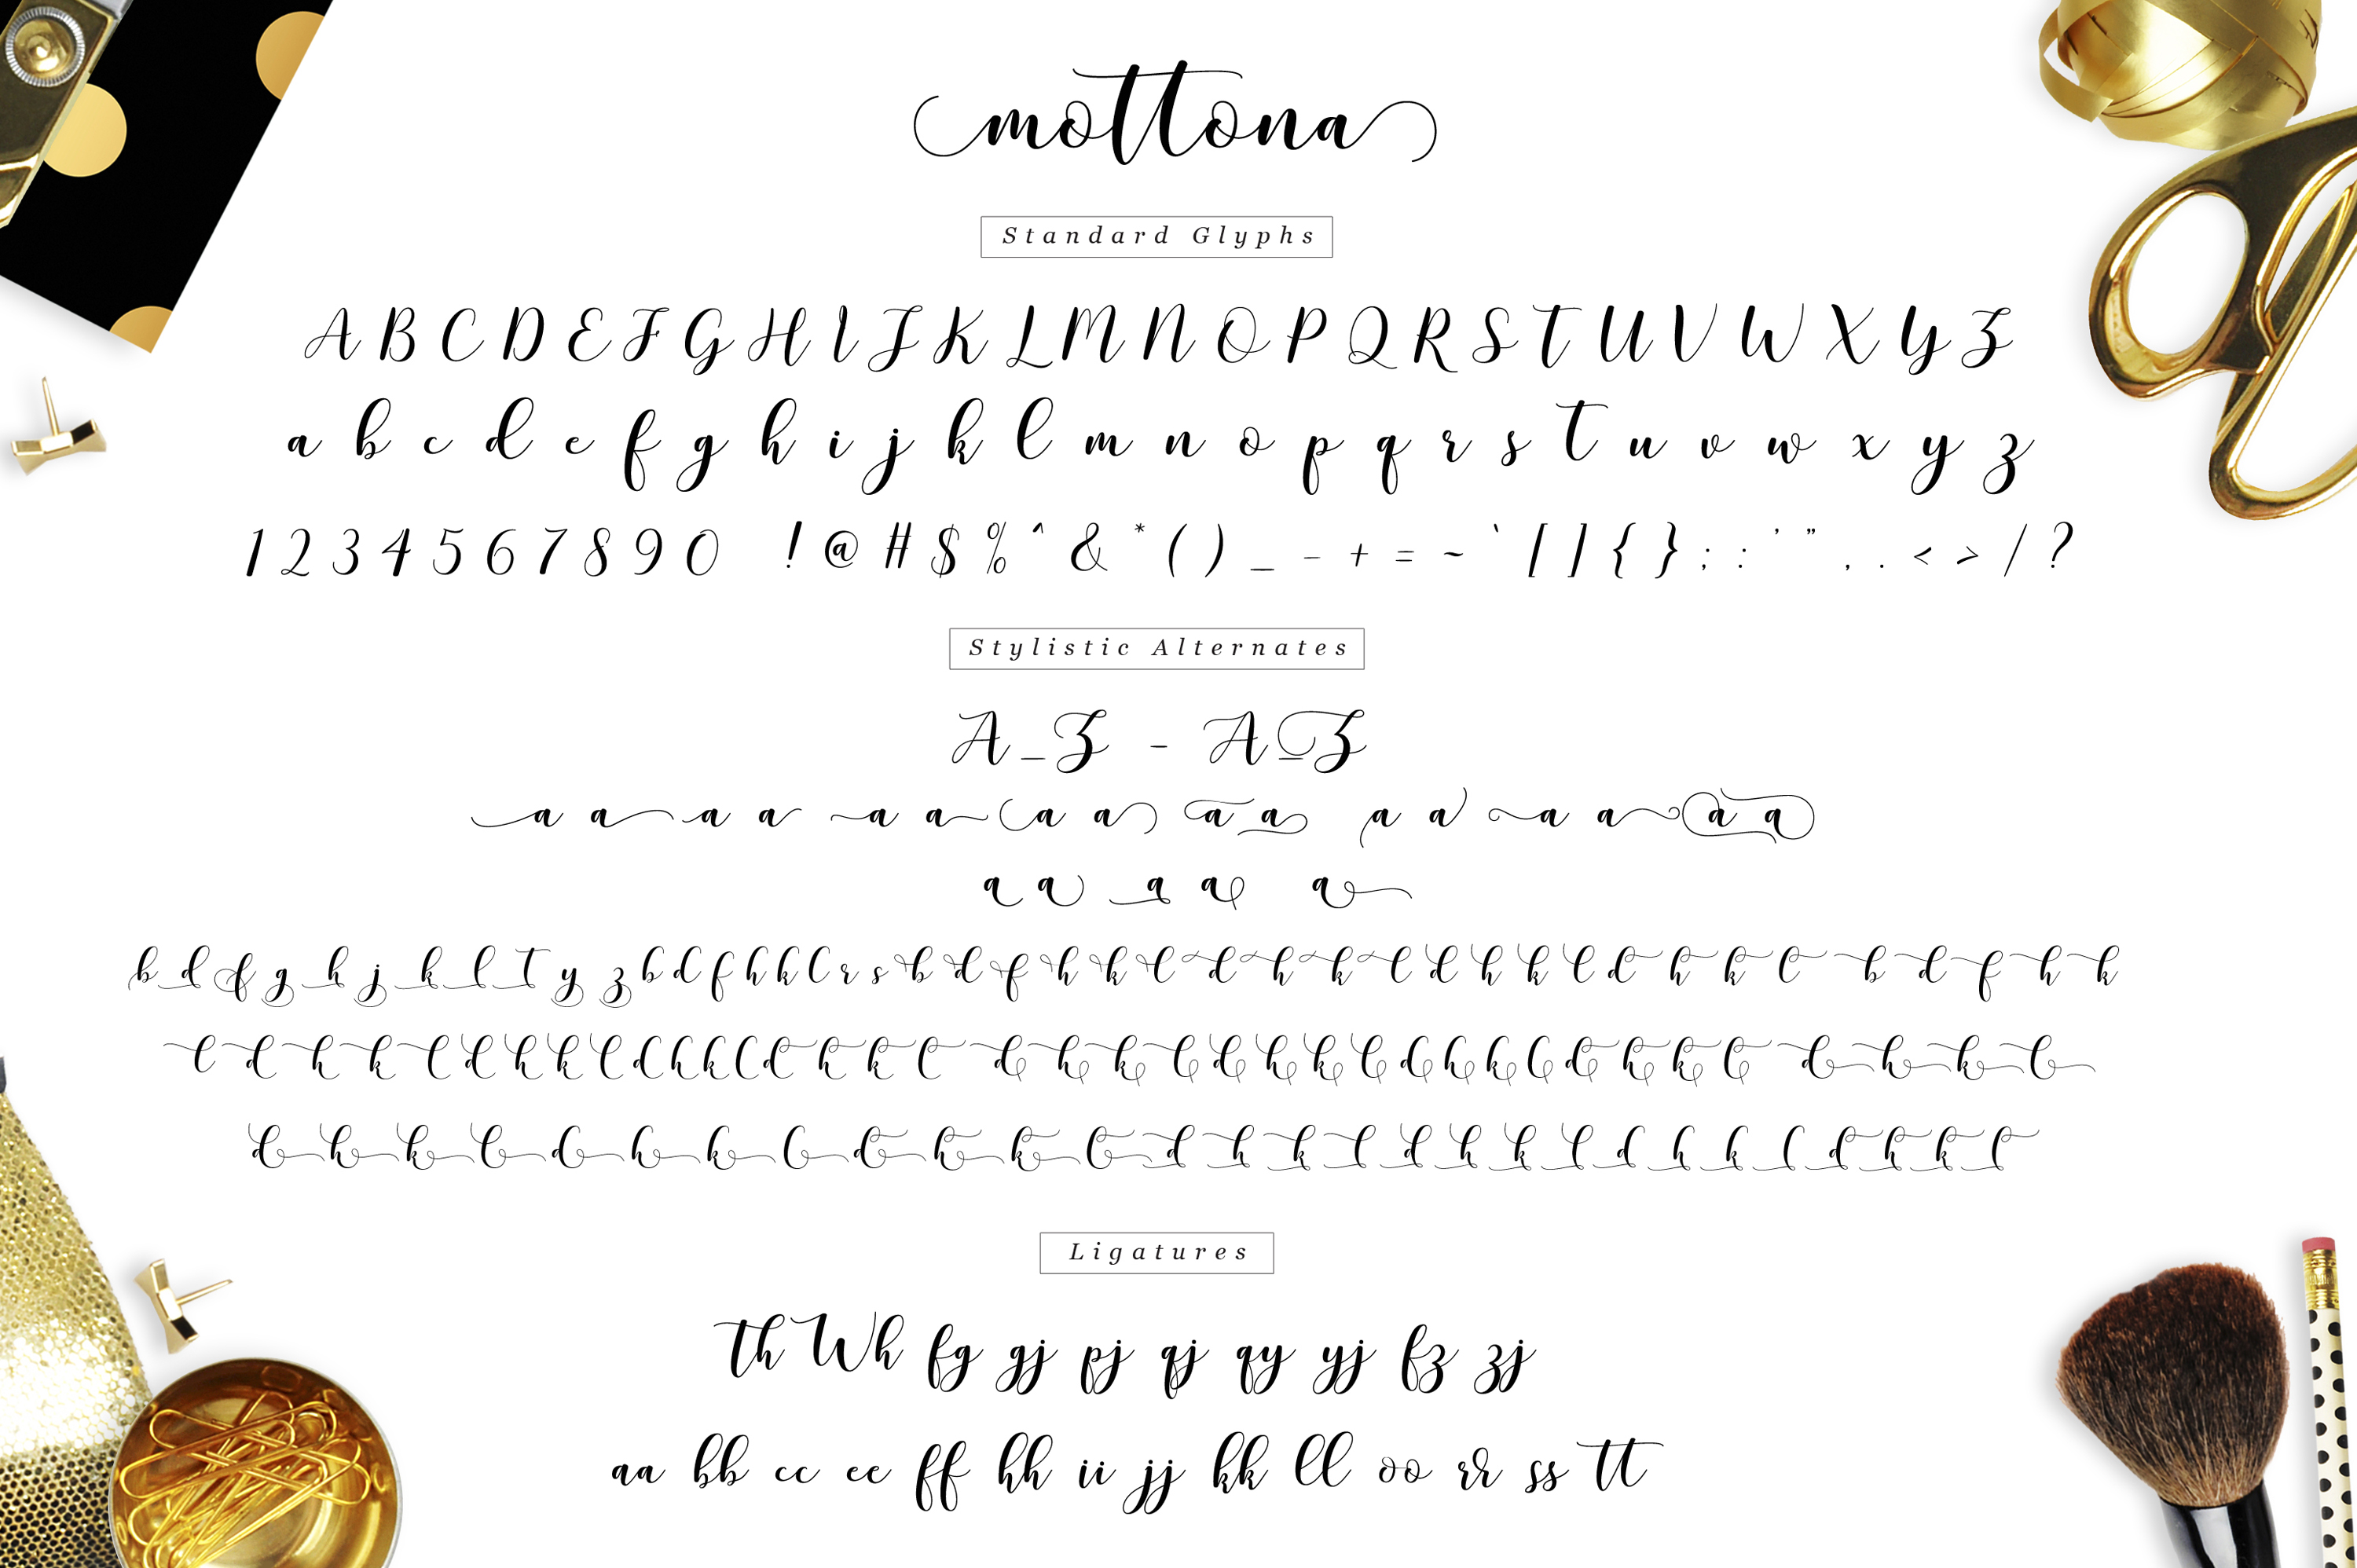 mottona
Standard Glyphs
A B C D E F G H I J K L M N O P Q R S T U V W X Y Z
a b c d e f g h i j k l m n o p q r s t u v w x y z
1 2 3 4 5 6 7 8 9 0 ! @ # $ % ^ & * ( ) _ - + = ~ ` [ ] { } ; : ' " , . < > / ?
Stylistic Alternates
A_Z - A_Z
a a a a a a a a a a a a a a a a
a a a a a
b d f g h j k l t y z b d f h k l r s b d f h k l d h k l d h k l d h k l b d f h k
l d h k l d h k l d h k l d h k l d h k l d h k l d h k l d h k l d h k l
d h k l d h k l d h k l d h k l d h k l d h k l d h k l
Ligatures
th Wh fg gj pj qj qy yj fz zj
aa bb cc ee ff hh ii jj kk ll oo rr ss tt